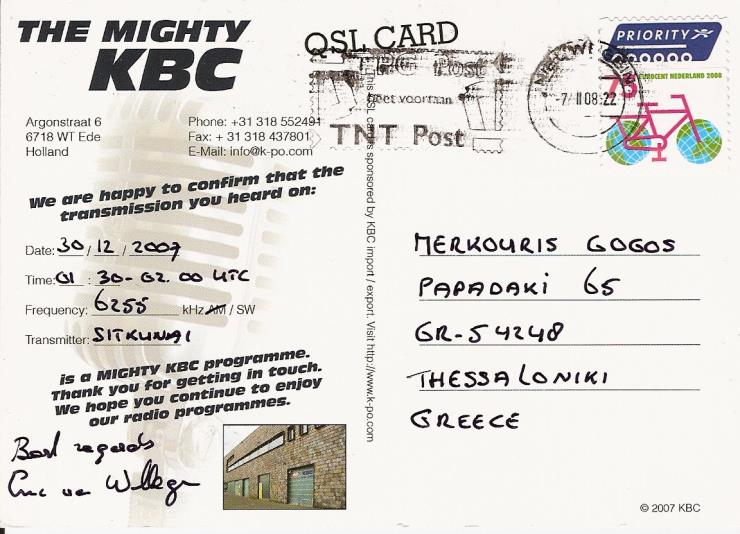 THE MIGHTY
KBC
QSL CARD
Argonstraat 6
6718 WT Ede
Holland
Phone: +31 318 552491
Fax: + 31 318 437801
E-Mail: info@k-po.com
TNT Post
-7 II 08:22
PRIORITY
EUROCENT NEDERLAND 2008
We are happy to confirm that the
transmission you heard on:
Date: 30 / 12 / 2007
Time: 01 : 30-02.00 UTC
Frequency: 6255 kHz AM / SW
Transmitter: SITKUNAI
is a MIGHTY KBC programme.
Thank you for getting in touch.
We hope you continue to enjoy
our radio programmes.
Best regards
This QSL card is sponsored by KBC import / export. Visit http://www.k-po.com
MERKOURIS GOGOS
PAPADAKI 65
GR-54248
THESSALONIKI
GREECE
© 2007 KBC